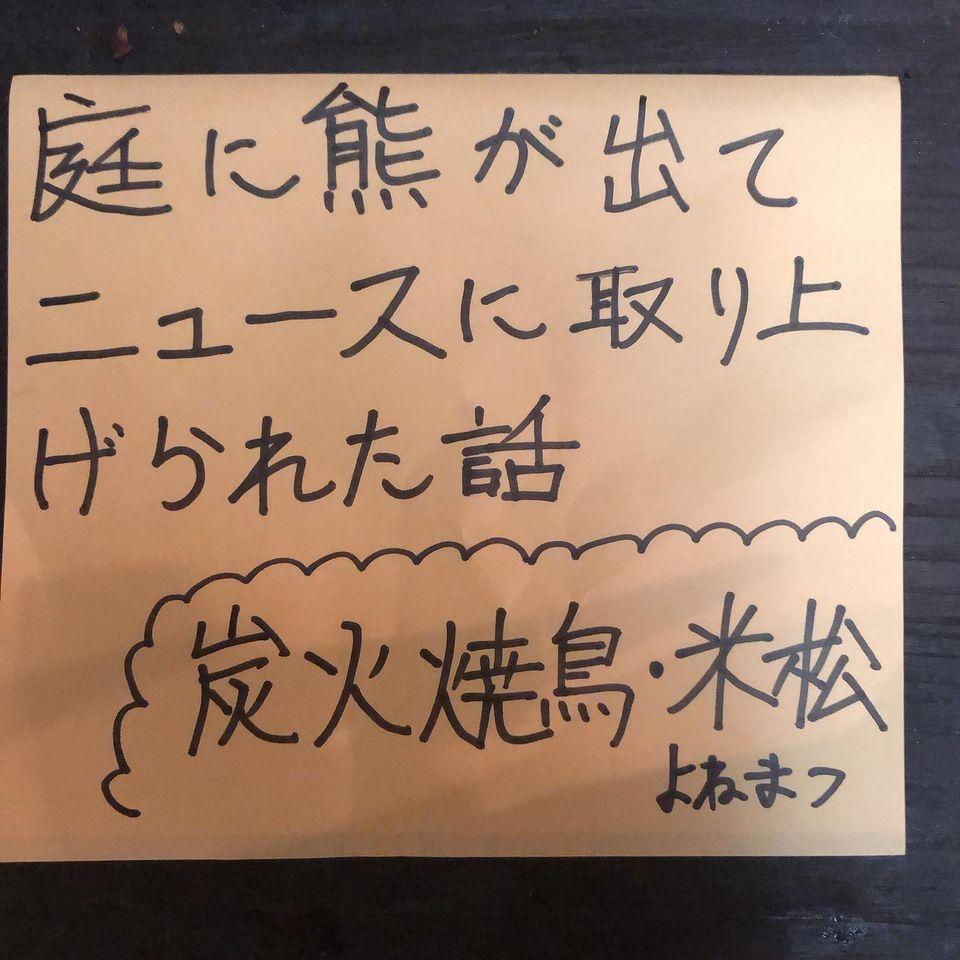 庭に熊が出て
ニュースに取り上
げられた話
炭火焼鳥・米松
よねまつ